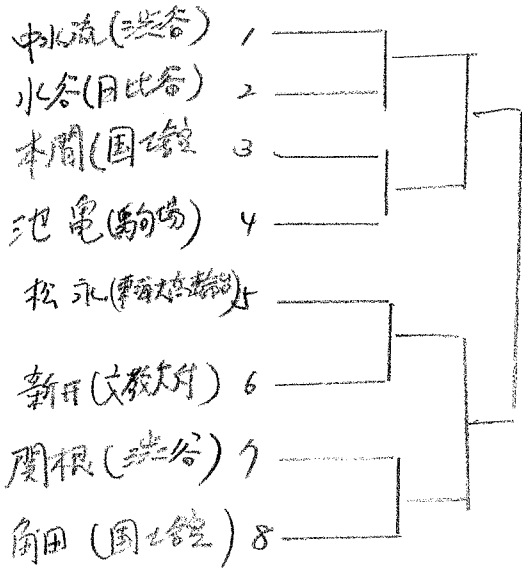 中水流(渋谷) 1
水谷(日比谷) 2
本間(国士舘 3
池亀(駒場) 4
松永( 5
新開(文教大付) 6
関根(渋谷) 7
角田(国士舘) 8